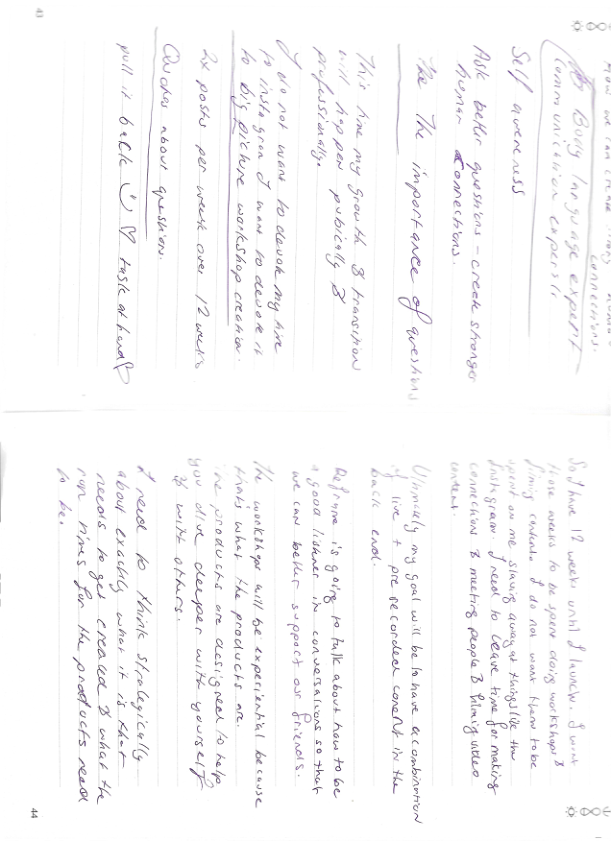 How we can create strong human
connections.
Body language expert
communication expert
Self awareness
Ask better questions - create stronger
human connections.
The The importance of questions
This time my growth & transition
will happen publically &
professionally.
I do not want to devote my time
to instagram I want to devote it
to big picture workshop creation.
2x posts per week over 12 weeks
Quotes about question.
pull it back ☺ ♡ task at hand ♡
43
So I have 12 weeks until I launch. I want
those weeks to be spent doing workshops &
filming content. I do not want them to be
spent on me slaving away at things like the
Instagram. I need to leave time for making
connections & meeting people & filming video
content.
Ultimately my goal will be to have a combination
of live + pre recorded content in the
back end.
is going to talk about how to be
a good listener in conversations so that
we can better support our friends.
The workshops will be experiential because
that's what the products are.
The products are designed to help
you dive deeper with yourself &
with others.
I need to think strategically
about exactly what it is that
needs to get created & what the
run times for the products need
to be.
44